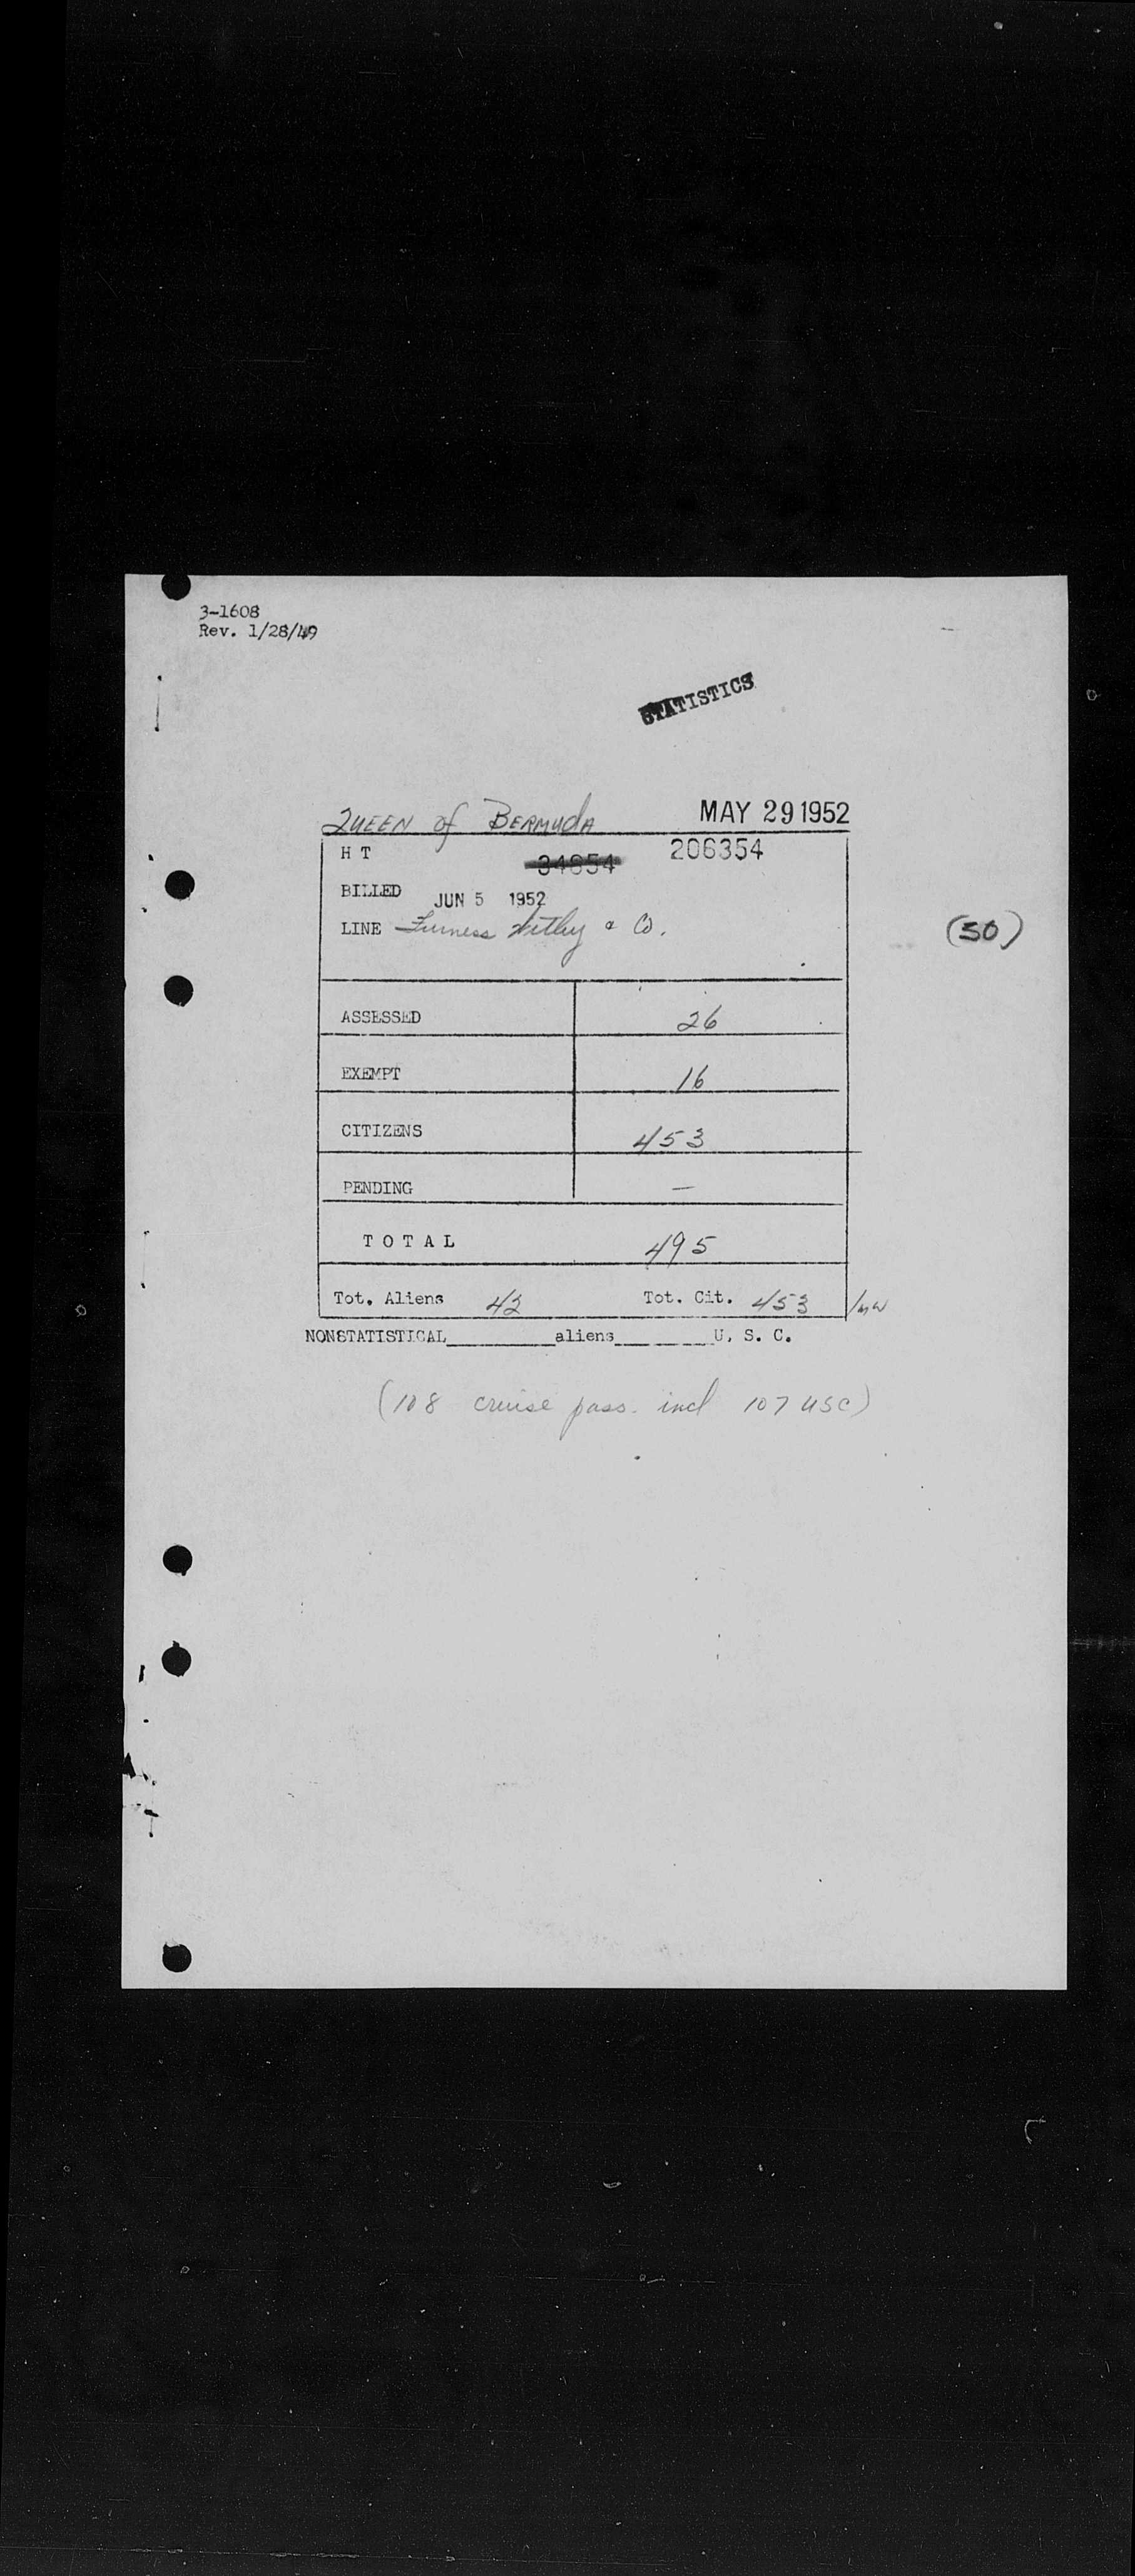 3-1608
Rev. 1/28/49
STATISTICS
QUEEN of BERMUDA MAY 29 1952
H T 34854 206354
BILLED JUN 5 1952
LINE Furness Withy & Co.
(50)
ASSESSED 26
EXEMPT 16
CITIZENS 453
PENDING —
T O T A L 495
Tot. Aliens 42 Tot. Cit. 453
NONSTATISTICAL________aliens________U. S. C.
(108 cruise pass. incl 107 USC)